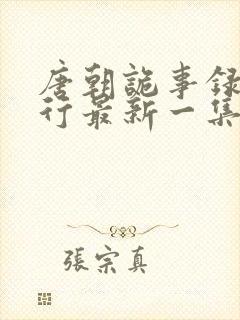 唐朝詭事録
行最新一集
張宗真